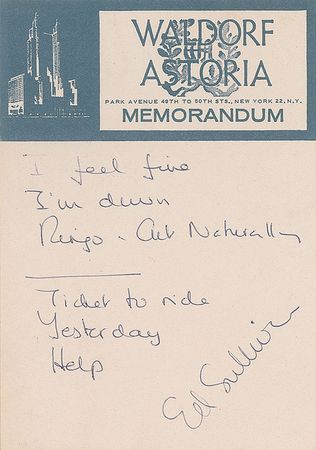 WALDORF
ASTORIA
PARK AVENUE 49TH TO 50TH STS., NEW YORK 22, N.Y.
MEMORANDUM
I feel fine
I'm down
Ringo - Act Naturally
Ticket to ride
Yesterday
Help
Ed Sullivan